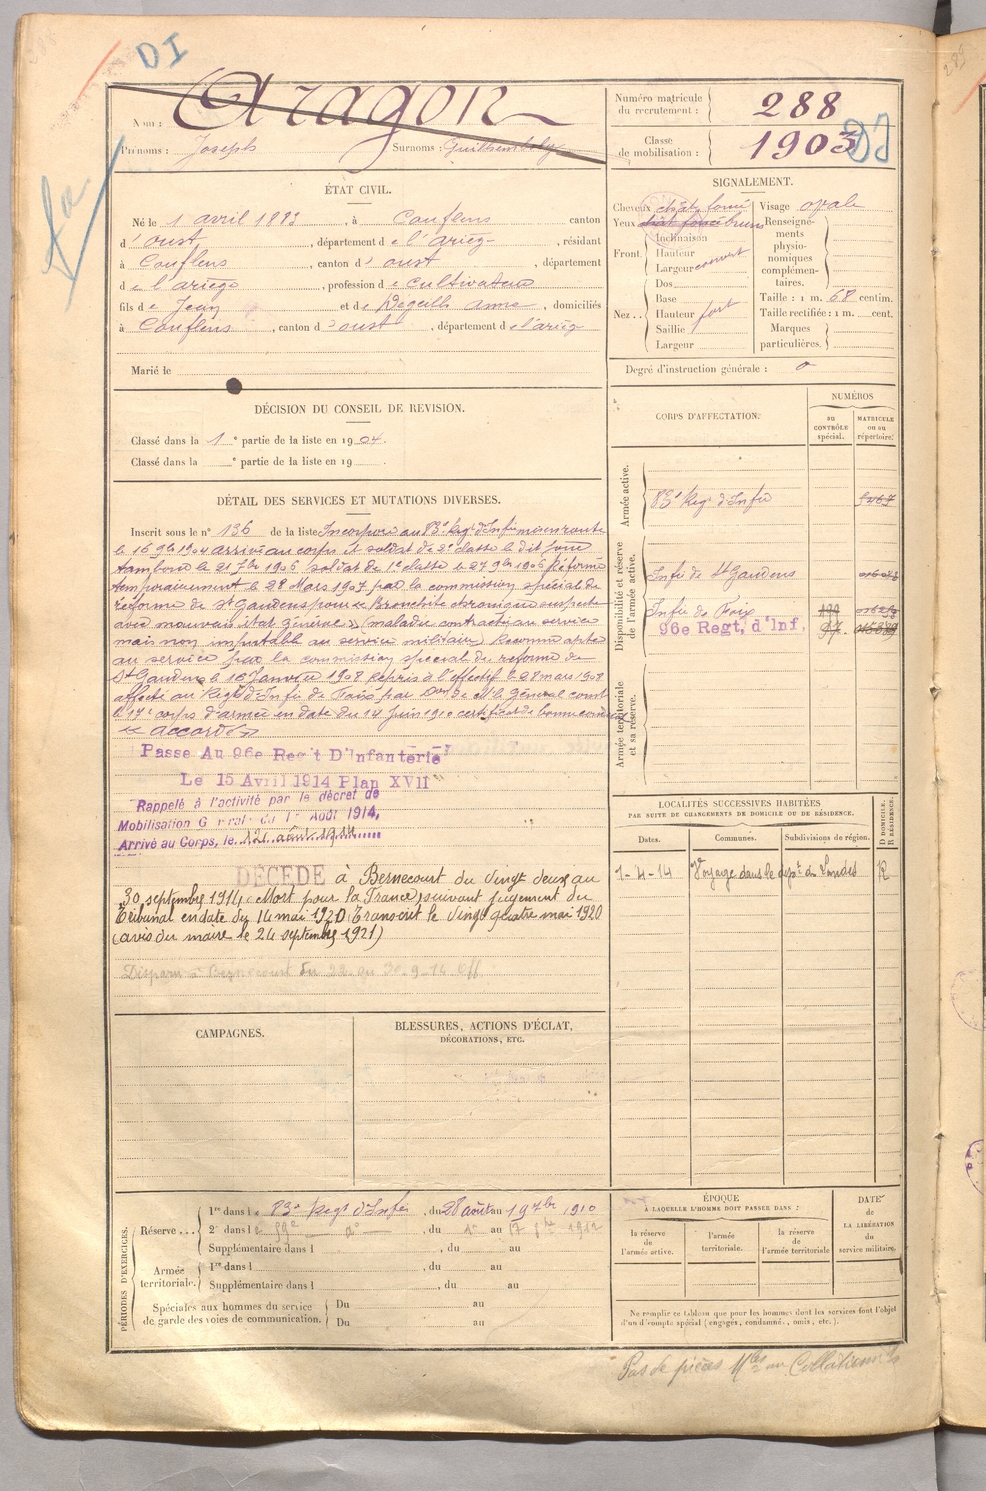 288
DI
Nom : Aragon
Prénoms : Joseph Surnoms :
Numéro matricule du recrutement : 288
Classe de mobilisation : 1903
DI
ÉTAT CIVIL.
Né le 1 avril 1883, à Couflens canton
d'oust, département de l'ariège, résidant
à Couflens, canton d'oust, département
de l'ariège, profession de cultivateur
fils de Jean et de Anna, domiciliés
à Couflens, canton d'oust, département de l'ariège
Marié le
DÉCISION DU CONSEIL DE REVISION.
Classé dans la 1e partie de la liste en 1904.
Classé dans la e partie de la liste en 19 .
SIGNALEMENT.
Cheveux chât. foncé Visage ovale
Yeux chât foncé bruns
Front. Inclinaison
Hauteur
Largeur couvert
Nez.. Dos
Base
Hauteur fort
Saillie
Largeur
Renseignements physionomiques complémentaires.
Taille : 1 m. 68 centim.
Taille rectifiée : 1 m. cent.
Marques particulières.
Degré d'instruction générale : 0
DÉTAIL DES SERVICES ET MUTATIONS DIVERSES.
Inscrit sous le n° 136 de la liste Incorporé au 83e Regt d'Infie mis en route
le 16 9bre 1904 arrivé au corps et soldat de 2e classe le dit jour
tambour le 21 7bre 1906 soldat de 1e classe le 27 9bre 1906 Réformé
temporairement le 28 Mars 1907 par la commission spéciale de
réforme de St Gaudens pour « Bronchite chronique suspecte
avec mauvais état général », maladie contractée au service
mais non imputable au service militaire Reconnu apte
au service par la commission special de reforme de
St Gaudens le 16 Janvier 1908 Repris à l'effectif le 28 mars 1908
affecté au Regt d'Infie de Foix par Don de Mr le Général comt
le 17e corps d'armée en date du 14 Juin 1910 certificat de bonne conduite
« accordé »
Passe Au 96e Reg't D'Infanterie
Le 15 Avril 1914 Plan XVII
Rappelé à l'activité par le décret de
Mobilisation Générale du 1er Août 1914,
Arrivé au Corps, le 12 août 1914
DÉCÉDÉ à Bernecourt du vingt deux au
30 septembre 1914, Mort pour la France, suivant jugement du
Tribunal en date du 14 mai 1920. Transcrit le vingt quatre mai 1920
(avis du maire le 24 septembre 1921)
Disparu à Bernecourt du 22 au 30-9-14 Off
CORPS D'AFFECTATION.
NUMÉROS
au CONTRÔLE spécial.
MATRICULE ou au répertoire.
Armée active.
83e Regt d'Infie
Disponibilité et réserve de l'armée active.
Infie de St Gaudens
Infie de Foix
96e Regt, d'Inf. 97.
Armée territoriale et sa réserve.
LOCALITÉS SUCCESSIVES HABITÉES
PAR SUITE DE CHANGEMENTS DE DOMICILE OU DE RÉSIDENCE.
D DOMICILE. R RÉSIDENCE.
Dates. Communes. Subdivisions du région.
1-4-14 Voyage dans le dept des Landes R
CAMPAGNES.
BLESSURES, ACTIONS D'ÉCLAT,
DÉCORATIONS, ETC.
PÉRIODES D'EXERCICES.
Réserve... 1re dans le 83e Regt d'Infie, du 28 août au 19 7bre 1910
2e dans le 59e, du 1er au 17 1912
Supplémentaire dans l , du au
Armée territoriale. 1re dans l , du au
Supplémentaire dans l , du au
Spéciales aux hommes du service de garde des voies de communication. Du au
Du au
ÉPOQUE
À LAQUELLE L'HOMME DOIT PASSER DANS :
la réserve de l'armée active.
l'armée territoriale.
la réserve de l'armée territoriale
DATE DE LA LIBÉRATION du service militaire.
Ne remplir ce tableau que pour les hommes dont les services font l'objet
d'un décompte spécial (engagés, condamnés, omis, etc.).
Pas de pièces Mles au